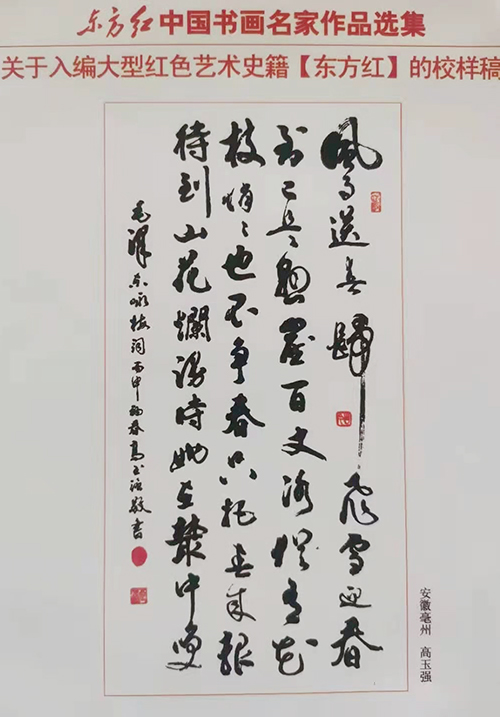 东方红中国书画名家作品选集
关于入编大型红色艺术史籍【东方红】的校样稿
風雨送春歸飛雪迎春
到已是懸崖百丈冰猶有花
枝俏々也不争春只把春来報
待到山花爛漫時她在叢中笑
毛澤东咏梅詞丙申初春高玉强敬書
安徽毫州 高玉强